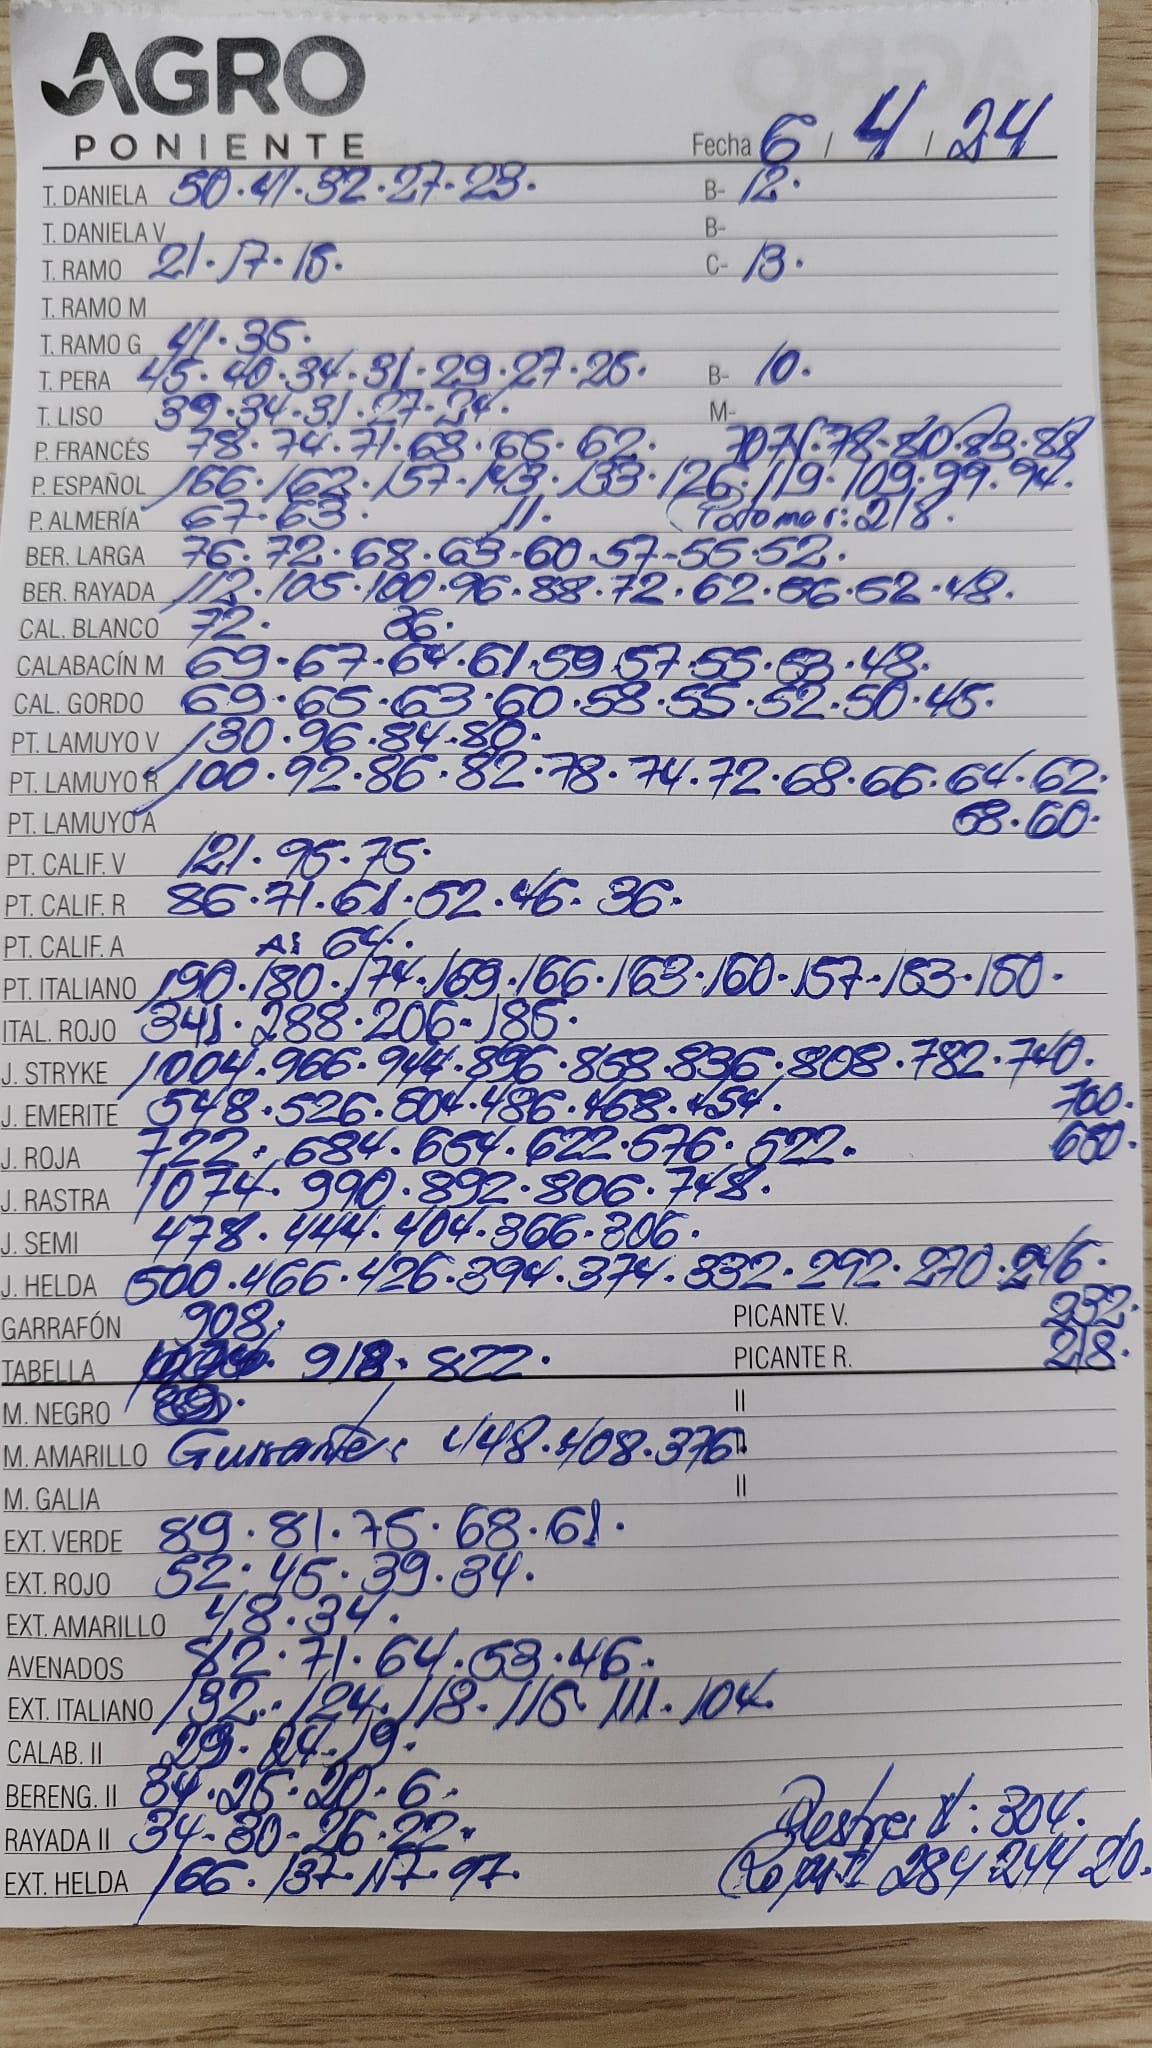 AGRO
PONIENTE
Fecha 6 / 4 / 24
T. DANIELA 50. 41. 32. 27. 23. B- 12.
T. DANIELA V B-
T. RAMO 21. 17. 15. C- 13.
T. RAMO M
T. RAMO G 41. 35.
T. PERA 45. 40. 34. 31. 29. 27. 25. B- 10.
T. LISO 39. 34. 31. 27. 24. M-
P. FRANCÉS 78. 74. 71. 68. 65. 62. 78-80. 83. 88
P. ESPAÑOL 166. 162. 157. 143. 133. 126. 119. 109. 99. 94.
P. ALMERÍA 67. 63. 11. 218.
BER. LARGA 76. 72. 68. 63-60. 57-55. 52.
BER. RAYADA 112. 105. 100. 96. 88. 72. 62. 56. 52. 48.
CAL. BLANCO 72. 36.
CALABACÍN M 69. 67. 64. 61. 59. 57. 55. 53. 48.
CAL. GORDO 69. 65. 63. 60. 58. 55. 52. 50. 45.
PT. LAMUYO V 130. 96. 84. 80.
PT. LAMUYO R 100. 92. 86. 82. 78. 74. 72. 68. 66. 64. 62.
PT. LAMUYO A 58. 60.
PT. CALIF. V 121. 95. 75.
PT. CALIF. R 86. 71. 61. 52. 46. 36.
PT. CALIF. A A: 64.
PT. ITALIANO 190. 180. 174. 169. 166. 163. 160. 157. 153. 150.
ITAL. ROJO 341. 288. 206. 185.
J. STRYKE 1004. 966. 944. 896. 858. 836. 808. 782. 740.
J. EMERITE 548. 526. 504. 486. 468. 454. 700.
J. ROJA 722. 684. 654. 622. 576. 522. 650.
J. RASTRA 1074. 990. 892. 806. 748.
J. SEMI 478. 444. 404. 366. 306.
J. HELDA 500. 466. 426. 394. 374. 332. 292. 270. 246.
GARRAFÓN 908. PICANTE V. 232.
TABELLA 918. 822. PICANTE R. 218.
M. NEGRO II
M. AMARILLO 448. 408. 376 II
M. GALIA II
EXT. VERDE 89. 81. 75. 68. 61.
EXT. ROJO 52. 45. 39. 34.
EXT. AMARILLO 48. 34.
AVENADOS 82. 71. 64. 53. 46.
EXT. ITALIANO 132. 124. 118. 115. 111. 104.
CALAB. II 29. 24. 19.
BERENG. II 34. 25. 20. 6.
RAYADA II 34-30-26. 22. 304.
EXT. HELDA 166. 137. 117. 97. 284 244 210.